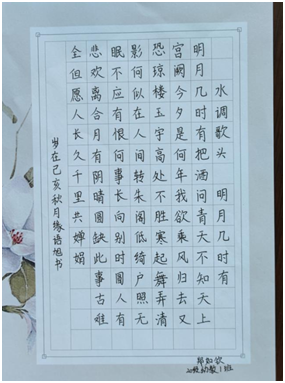 水调歌头 明月几时有
明月几时有把酒问青天不知天上
宫阙今夕是何年我欲乘风归去又
恐琼楼玉宇高处不胜寒起舞弄清
影何似在人间转朱阁低绮户照无
眠不应有恨何事长向别时圆人有
悲欢离合月有阴晴圆缺此事古难
全但愿人长久千里共婵娟
岁在己亥秋月缘语旭书
幼教1班